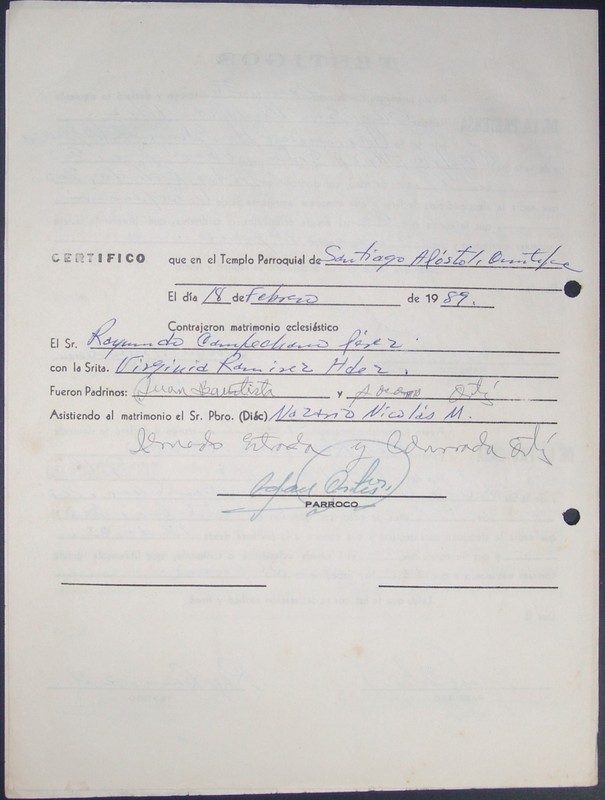 CERTIFICO que en el Templo Parroquial de Santiago Apóstol,
El día 18 de Febrero de 1989.
Contrajeron matrimonio eclesiástico
El Sr. Raymundo Campechano
con la Srita. Virginia Ramirez Hdez.
Fueron Padrinos: Juan Bautista y
Asistiendo al matrimonio el Sr. Pbro. (Diác) Nazario Nicolás M.
Estrada y
PARROCO